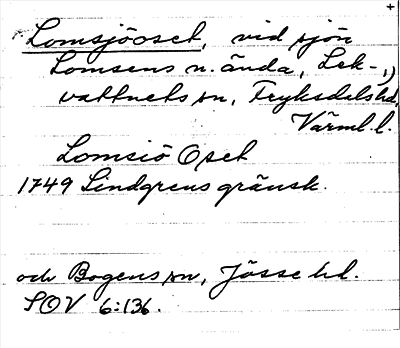 +
Lomsjöoset, vid sjön
Lomsens n. ända, Lek-
vattnets sn, Fryksdals hd, 1)
Värml. l.
Lomsiö Oset
1749 Lindgrens gränsk.
och Bogens sn, Jösse hd.
SOV 6:136.